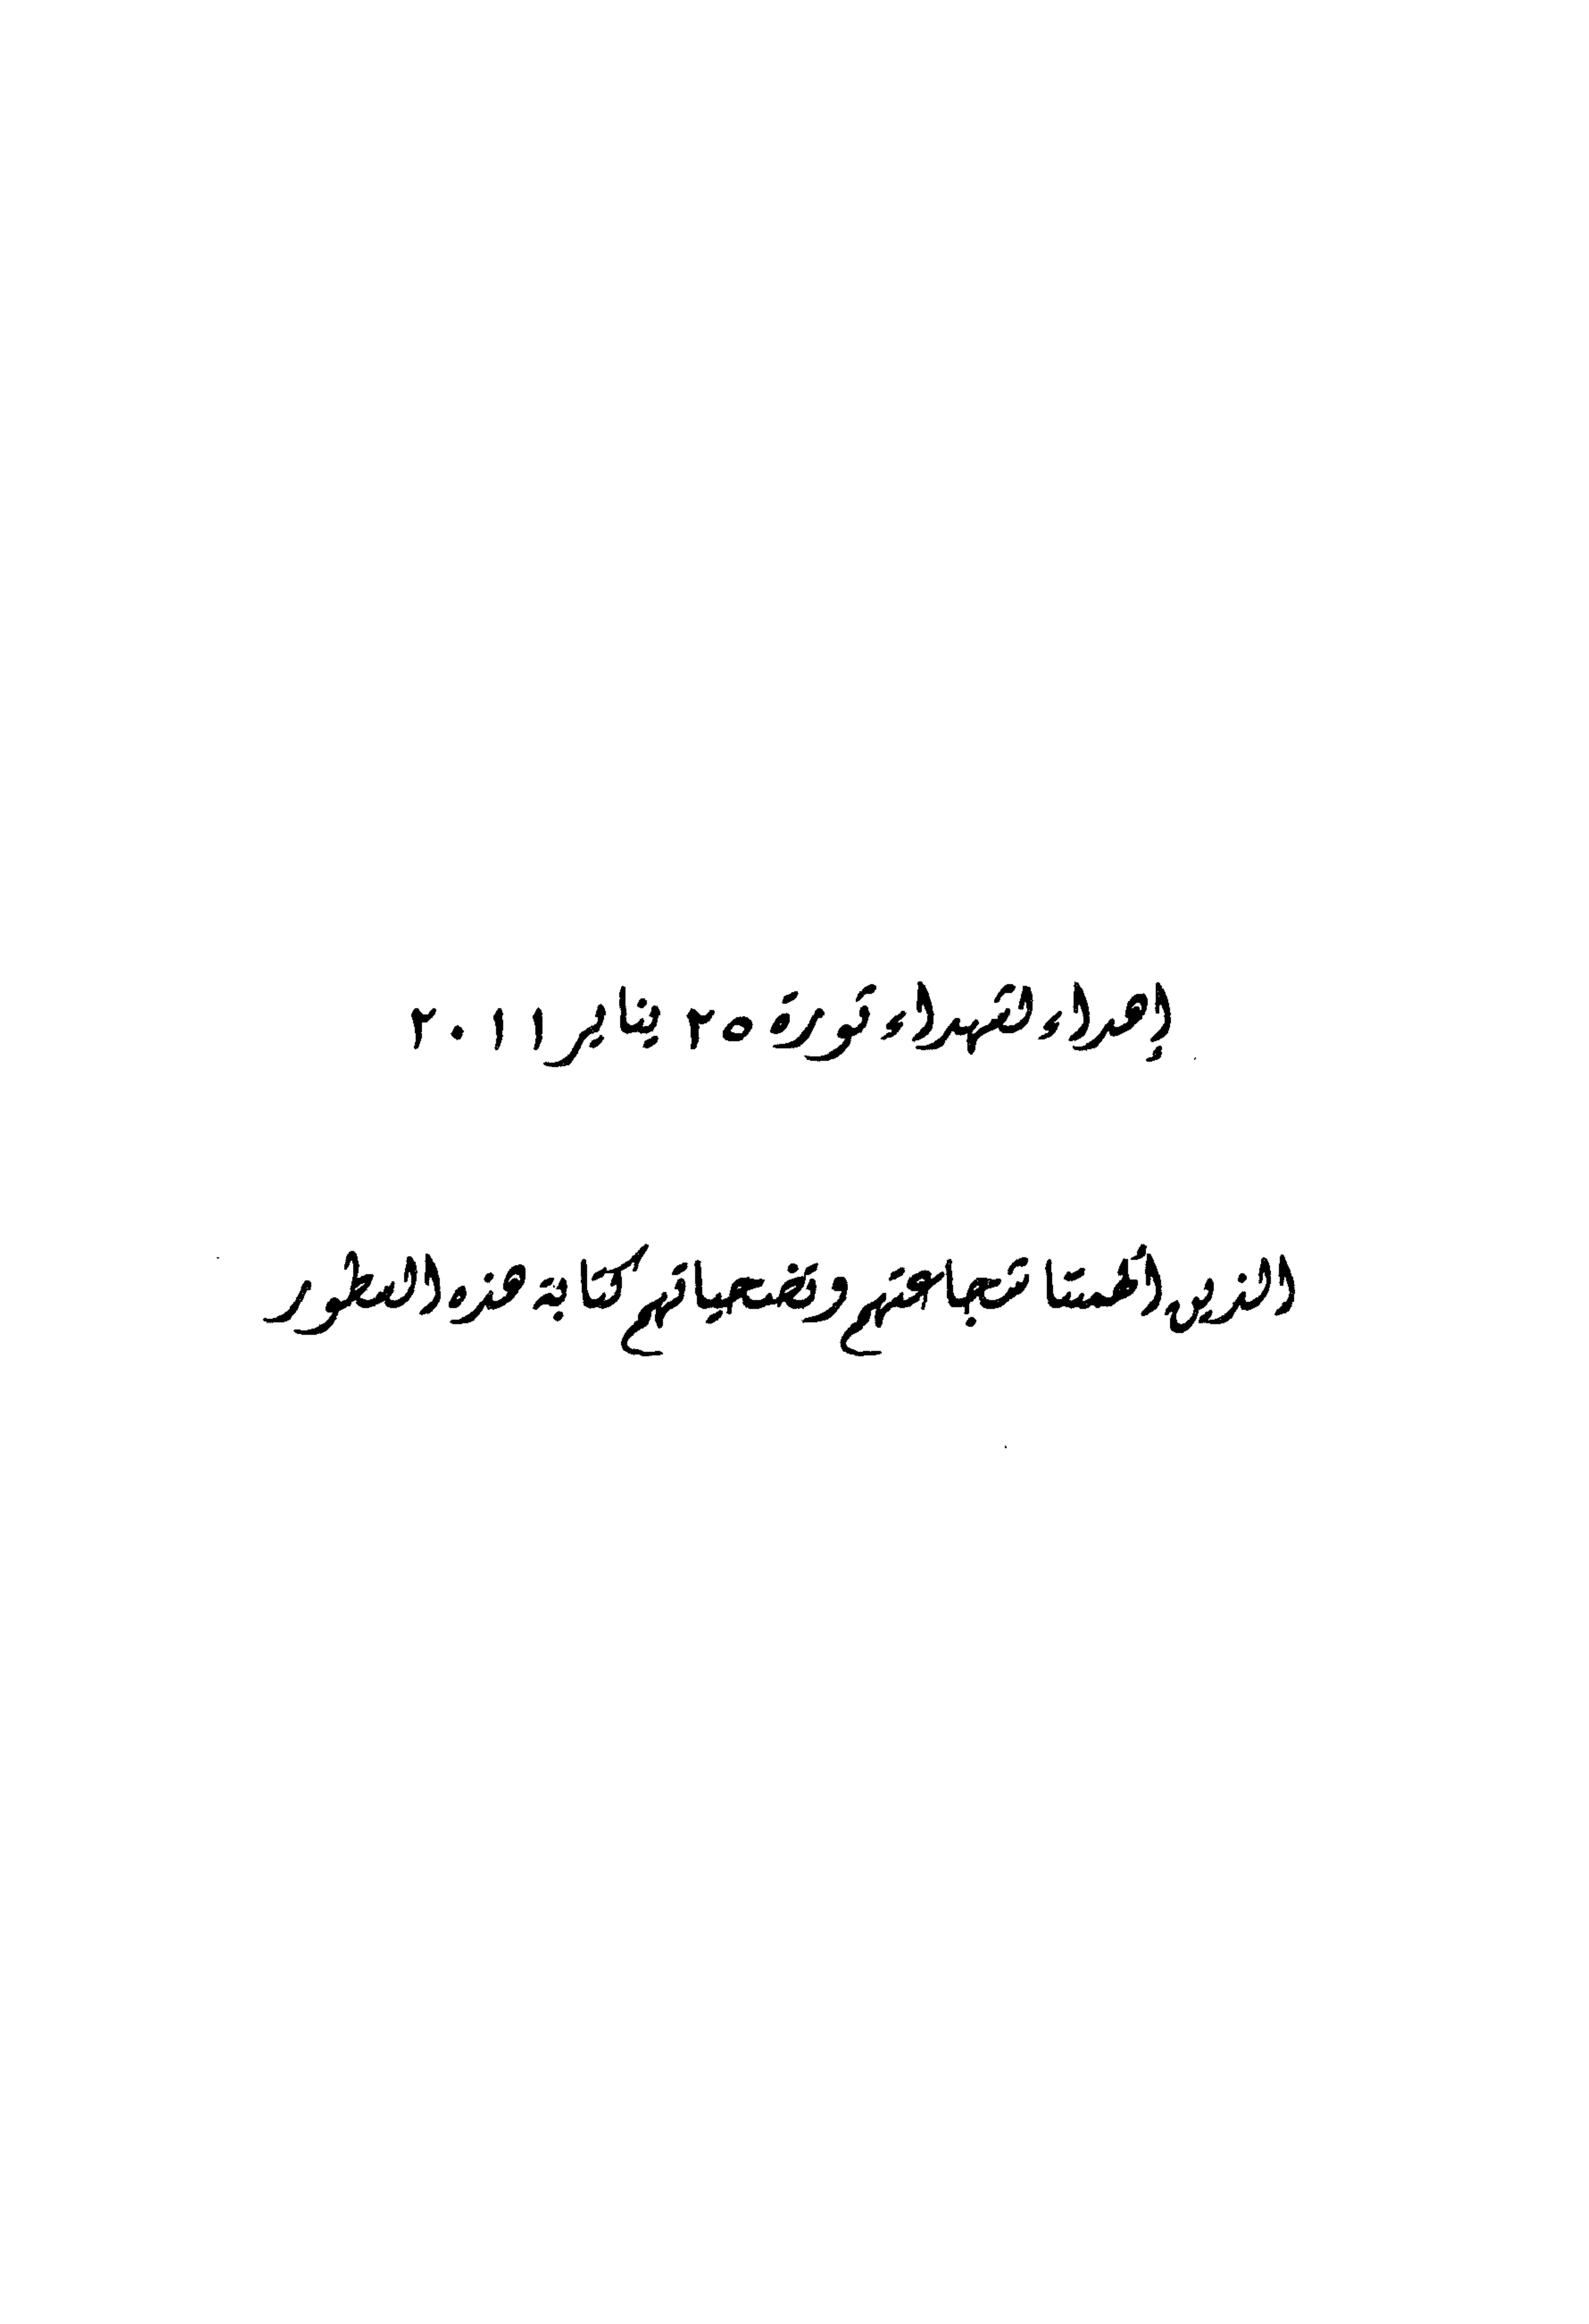 إهداء لشهداء ثورة ٢٥ يناير ٢٠١١
الذين ألهمتنا شجاعتهم وتضحياتهم كتابة هذه السطور